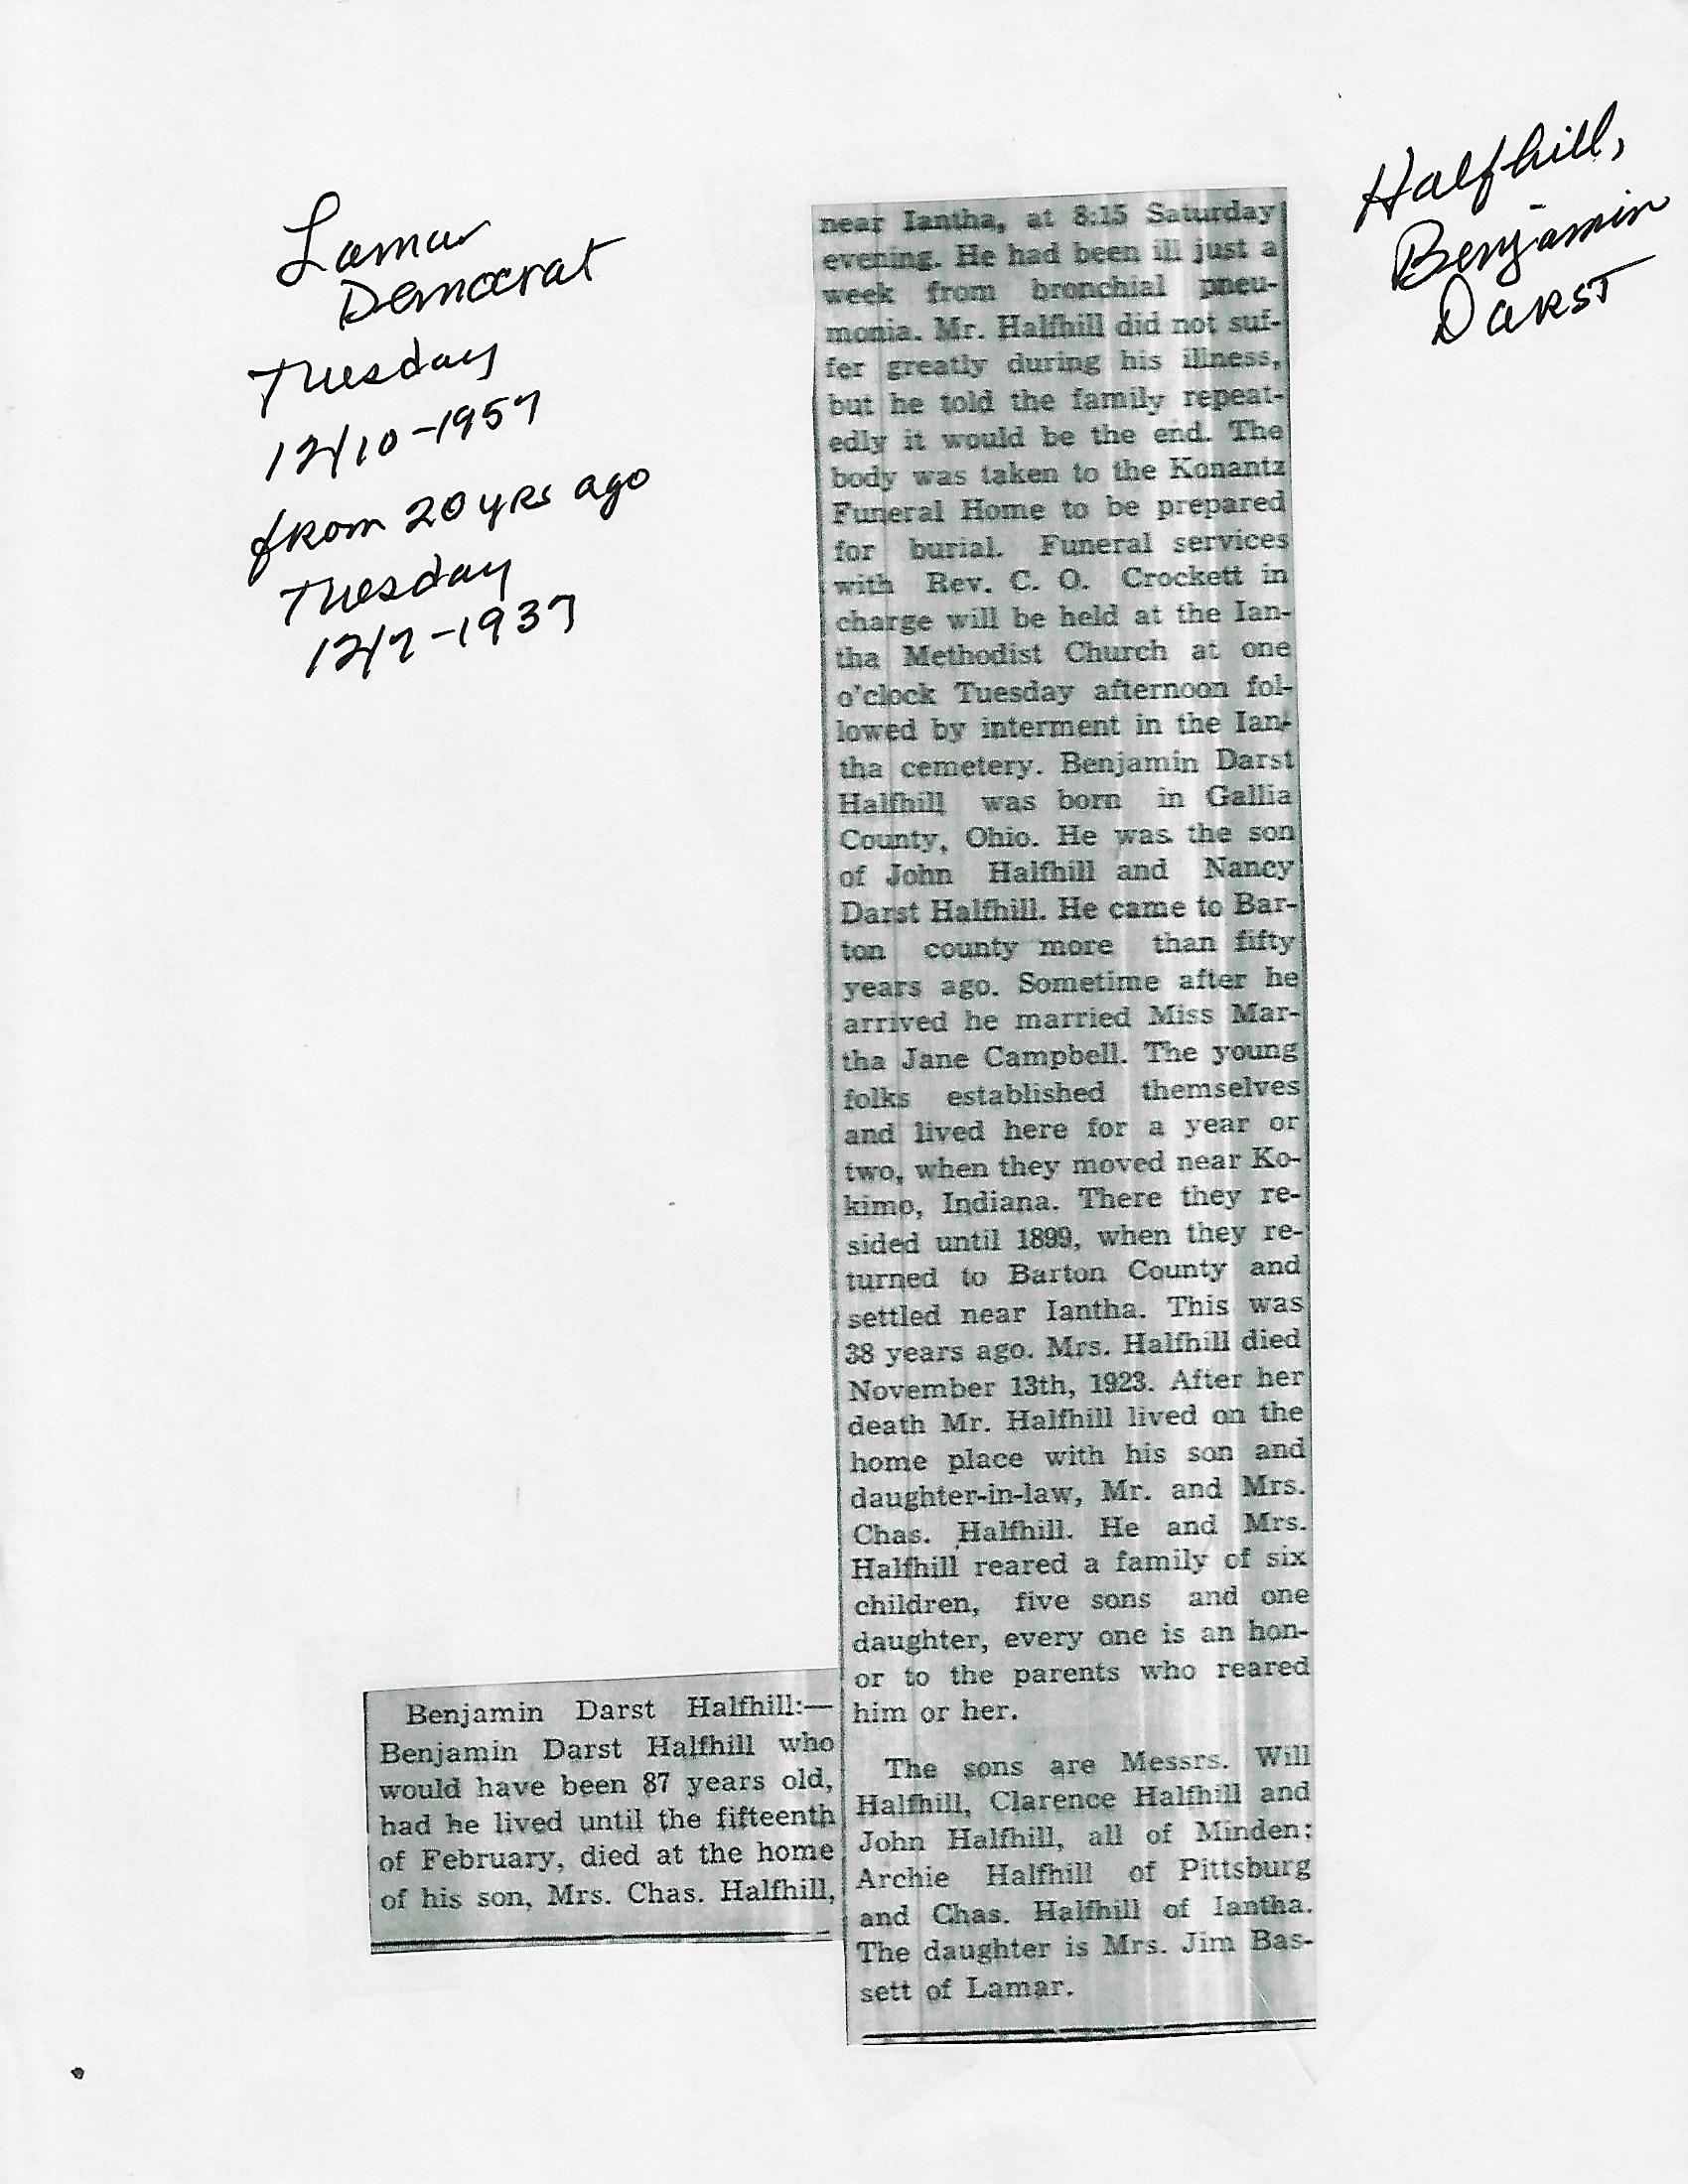 Lamar
Democrat
Tuesday
12/10-1957
from 20 yrs ago
Tuesday
12/7-1937
Halfhill,
Benjamin
Darst
Benjamin Darst Halfhill:—
Benjamin Darst Halfhill who
would have been 87 years old,
had he lived until the fifteenth
of February, died at the home
of his son, Mrs. Chas. Halfhill,
near Iantha, at 8:15 Saturday
evening. He had been ill just a
week from bronchial pneu-
monia. Mr. Halfhill did not suf-
fer greatly during his illness,
but he told the family repeat-
edly it would be the end. The
body was taken to the Konantz
Funeral Home to be prepared
for burial. Funeral services
with Rev. C. O. Crockett in
charge will be held at the Ian-
tha Methodist Church at one
o'clock Tuesday afternoon fol-
lowed by interment in the Ian-
tha cemetery. Benjamin Darst
Halfhill was born in Gallia
County, Ohio. He was the son
of John Halfhill and Nancy
Darst Halfhill. He came to Bar-
ton county more than fifty
years ago. Sometime after he
arrived he married Miss Mar-
tha Jane Campbell. The young
folks established themselves
and lived here for a year or
two, when they moved near Ko-
kimo, Indiana. There they re-
sided until 1899, when they re-
turned to Barton County and
settled near Iantha. This was
38 years ago. Mrs. Halfhill died
November 13th, 1923. After her
death Mr. Halfhill lived on the
home place with his son and
daughter-in-law, Mr. and Mrs.
Chas. Halfhill. He and Mrs.
Halfhill reared a family of six
children, five sons and one
daughter, every one is an hon-
or to the parents who reared
him or her.
The sons are Messrs. Will
Halfhill, Clarence Halfhill and
John Halfhill, all of Minden;
Archie Halfhill of Pittsburg
and Chas. Halfhill of Iantha.
The daughter is Mrs. Jim Bas-
sett of Lamar.